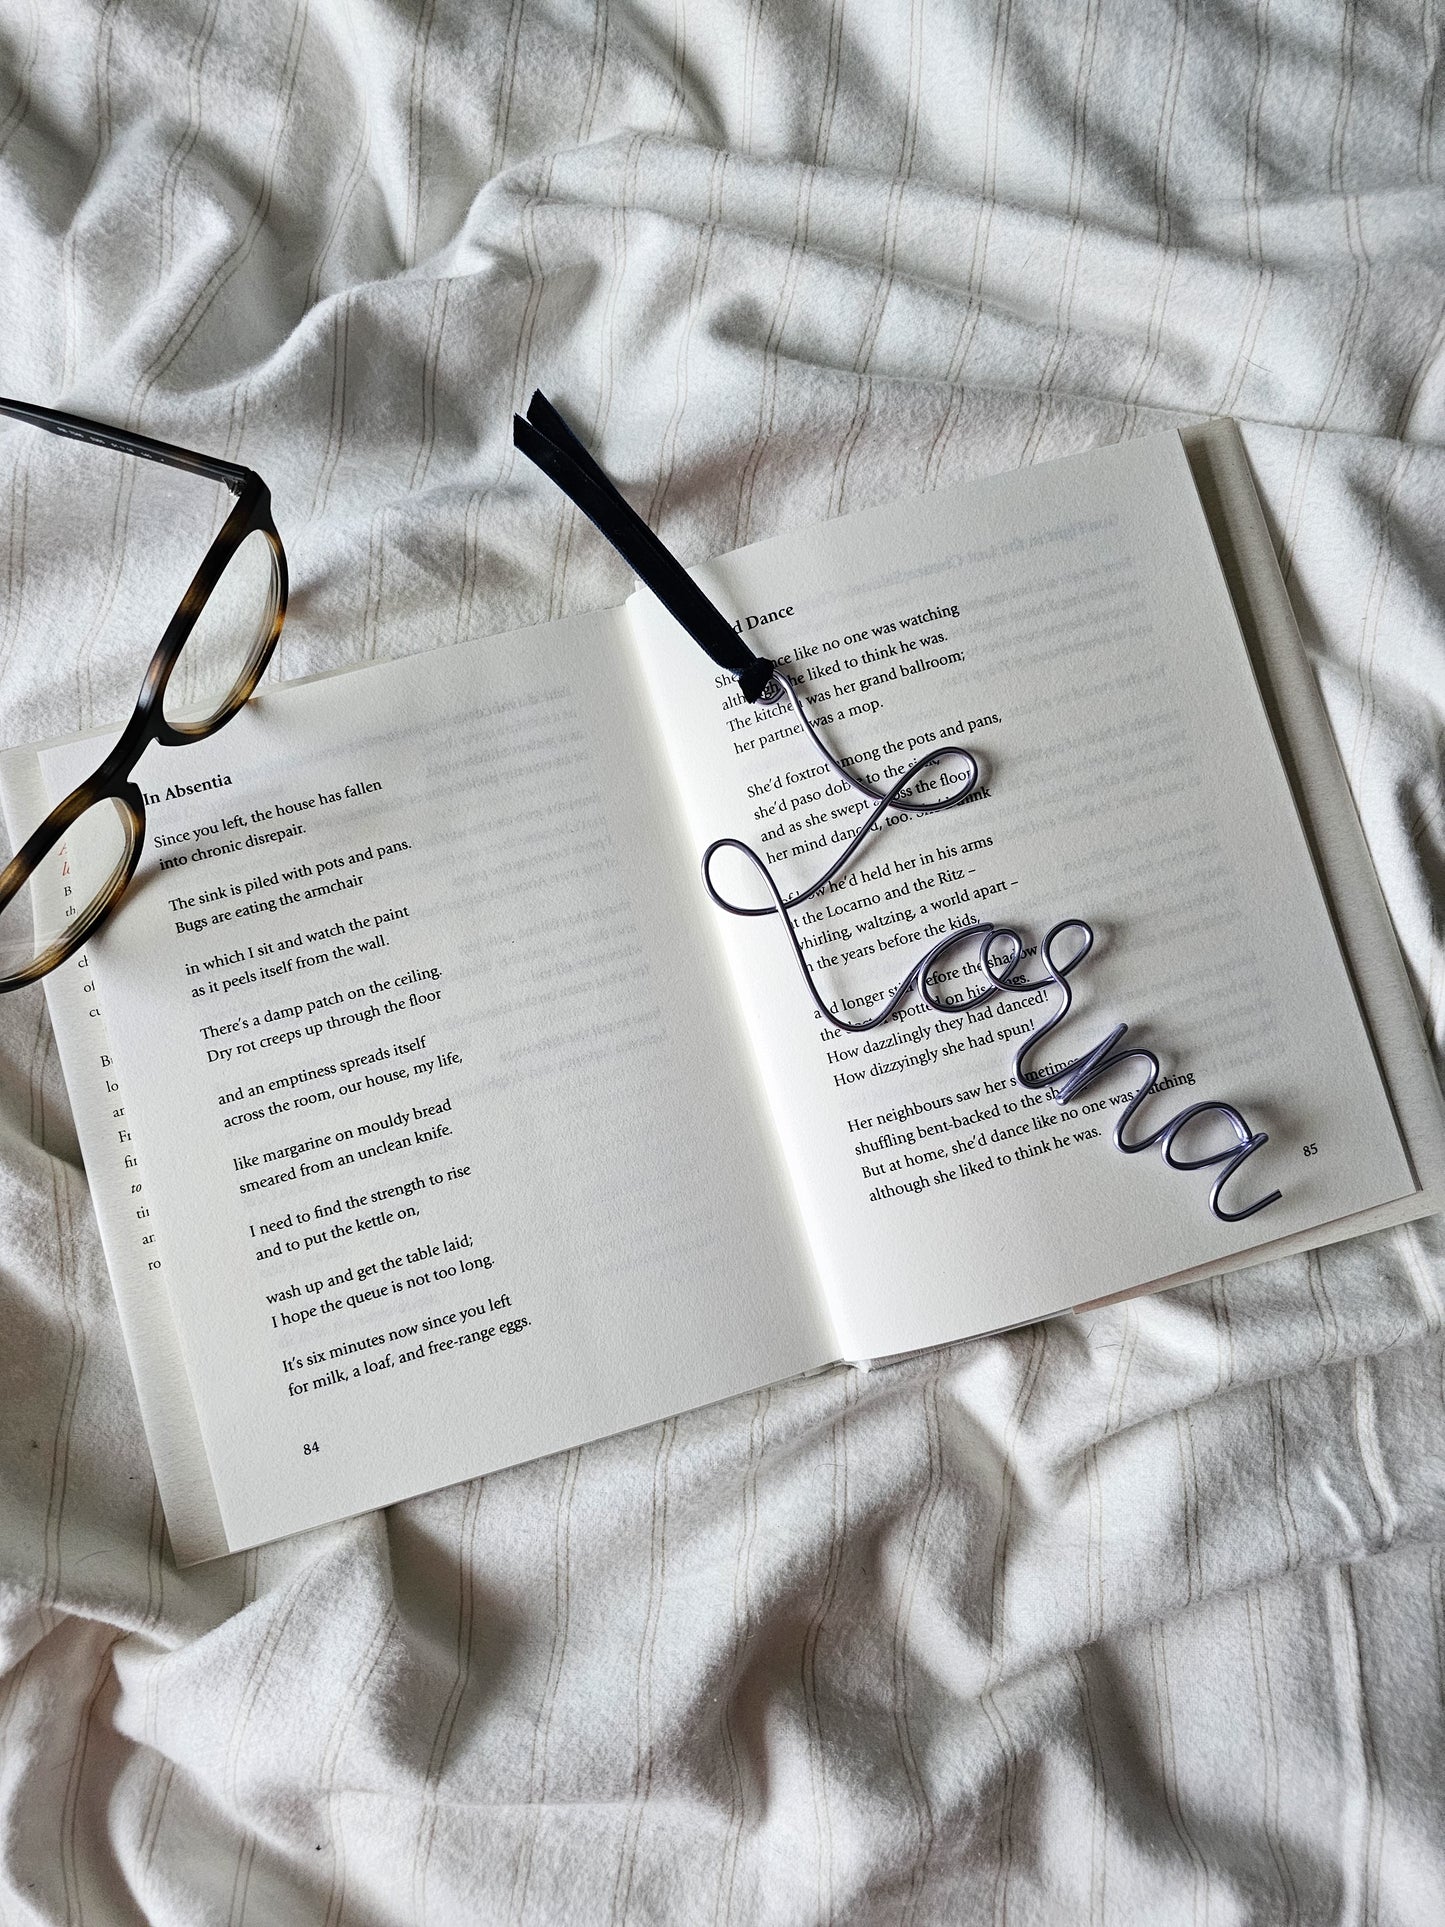 In Absentia
Since you left, the house has fallen
into chronic disrepair.
The sink is piled with pots and pans.
Bugs are eating the armchair
in which I sit and watch the paint
as it peels itself from the wall.
There's a damp patch on the ceiling.
Dry rot creeps up through the floor
and an emptiness spreads itself
across the room, our house, my life,
like margarine on mouldy bread
smeared from an unclean knife.
I need to find the strength to rise
and to put the kettle on,
wash up and get the table laid;
I hope the queue is not too long.
It's six minutes now since you left
for milk, a loaf, and free-range eggs.
84
Dance
like no one was watching
although she liked to think he was.
The kitchen was her grand ballroom;
her partner was a mop.
She'd foxtrot among the pots and pans,
she'd paso doble to the sink,
and as she swept across the floor
her mind danced, too. She'd think
of how he'd held her in his arms
at the Locarno and the Ritz –
whirling, waltzing, a world apart –
in the years before the kids,
and longer still before the shadow
the doctor spotted on his lungs.
How dazzlingly they had danced!
How dizzyingly she had spun!
Her neighbours saw her sometimes
shuffling bent-backed to the
But at home, she'd dance like no one was watching
although she liked to think he was.
85
Leona